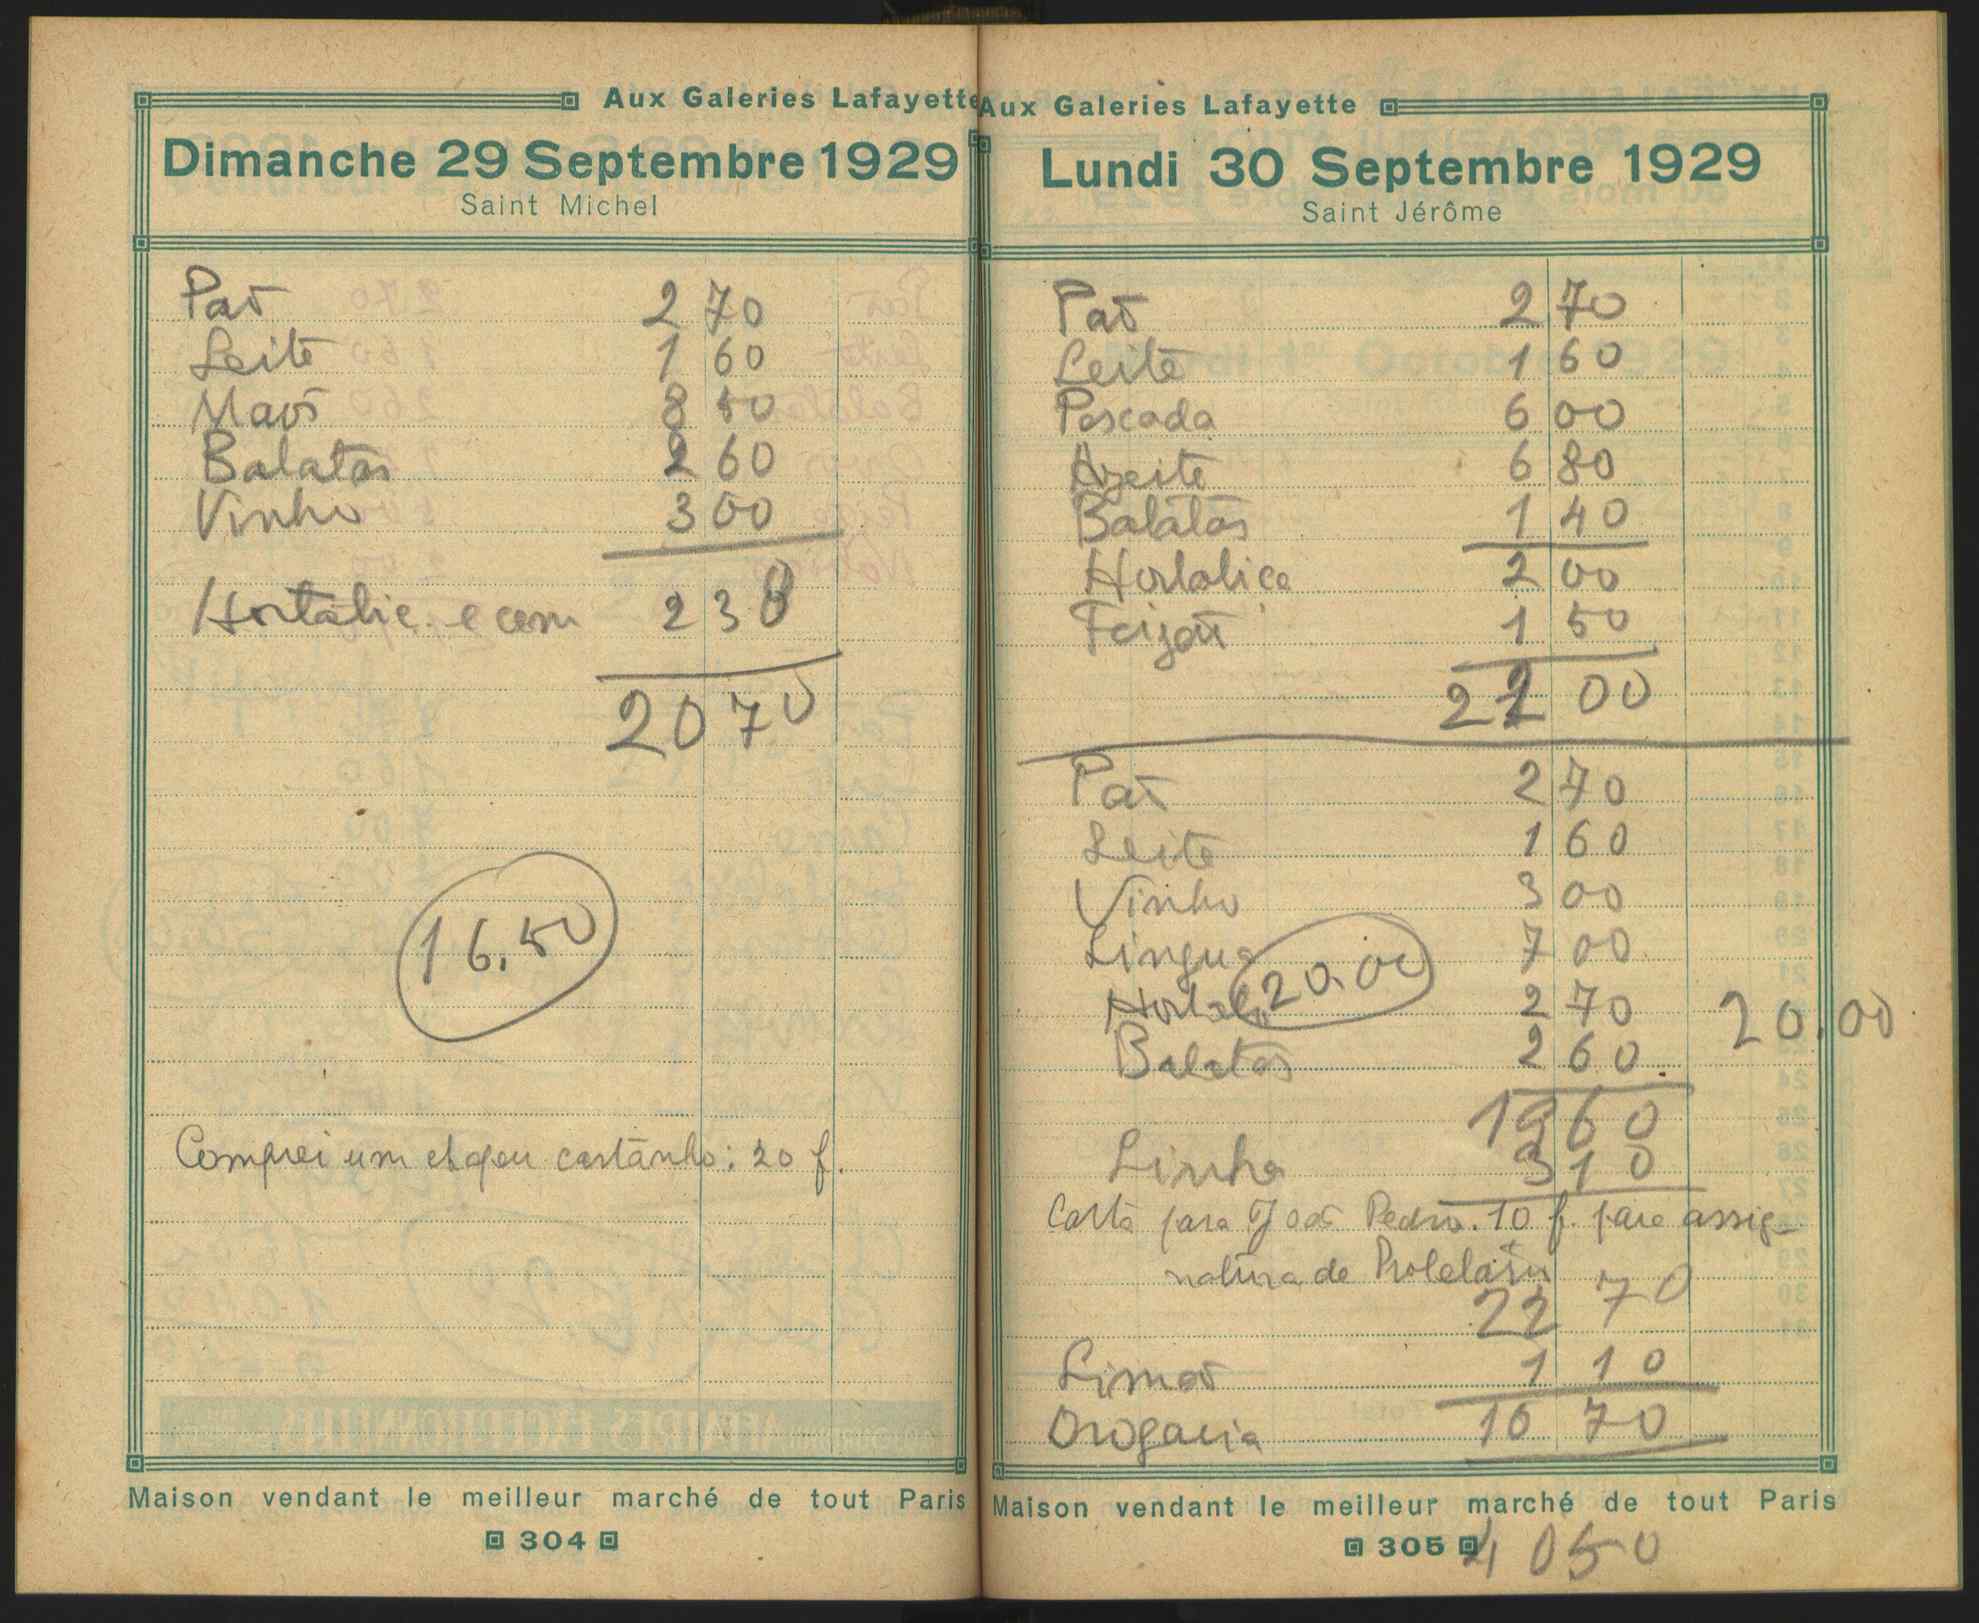 Aux Galeries Lafayette
Dimanche 29 Septembre 1929
Saint Michel
Paõ 2 70
Leite 1 60
8 50
Batatas 2 60
Vinho 3 00
Hortaliç. e cem 2 30
20 70
16.50
Comprei um chapeu castanho: 20 f.
Maison vendant le meilleur marché de tout Paris
304
Aux Galeries Lafayette
Lundi 30 Septembre 1929
Saint Jérôme
Paõ 2 70
Leite 1 60
Pescada 6 00
Azeite 6 80
Batatas 1 40
Hortaliça 2 00
Feijaõ 1 50
22 00
Paõ 2 70
Leite 1 60
Vinho 3 00
Lingua 7 00
20.00
Hortali 2 70 20.00
Batatas 2 60
19 60
Linha 3 10
Carta para Joaõ Pedro. 10 f. para assig-
natura de Proletario
22 70
Limaõ 1 10
Drogaria 16 70
Maison vendant le meilleur marché de tout Paris
305
40 50